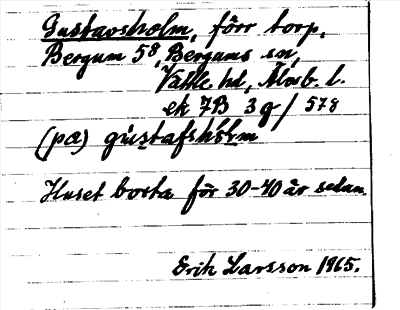 Gustavsholm, förr torp,
Bergum 5⁸, Bergums sn,
Vättle hd, Älvsb. l.
ek 7B 3g / 578
(pa) gustafshólm
Huset borta för 30-40 år sedan.
Erik Larsson 1965.